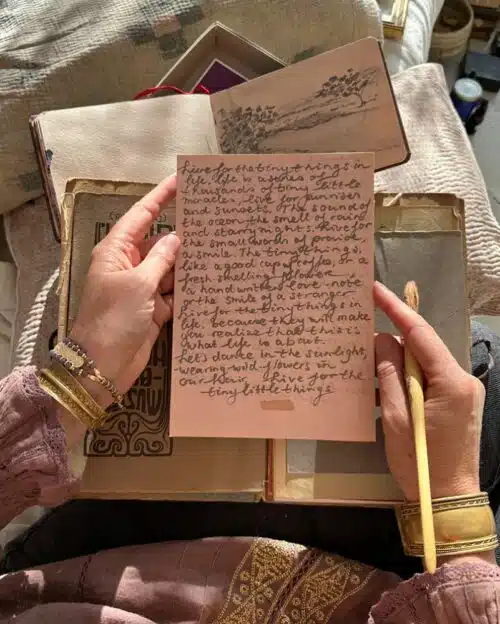 Live for the tiny things in
life. Life is a series of
thousands of tiny little
miracles, live for sunrises
and sunsets, the sound of
the ocean, the smell of rain
and starry nights. Live for
the small words of praise,
a smile. The tiny things,
like a good cup of coffee, or a
fresh smelling flower
a hand written love-note
or the smile of a stranger
Live for the tiny things in
life, because they will make
you realise that this is
what life is about.
Let's dance in the sunlight,
wearing wild-flowers in
our hair. Live for the
tiny little things